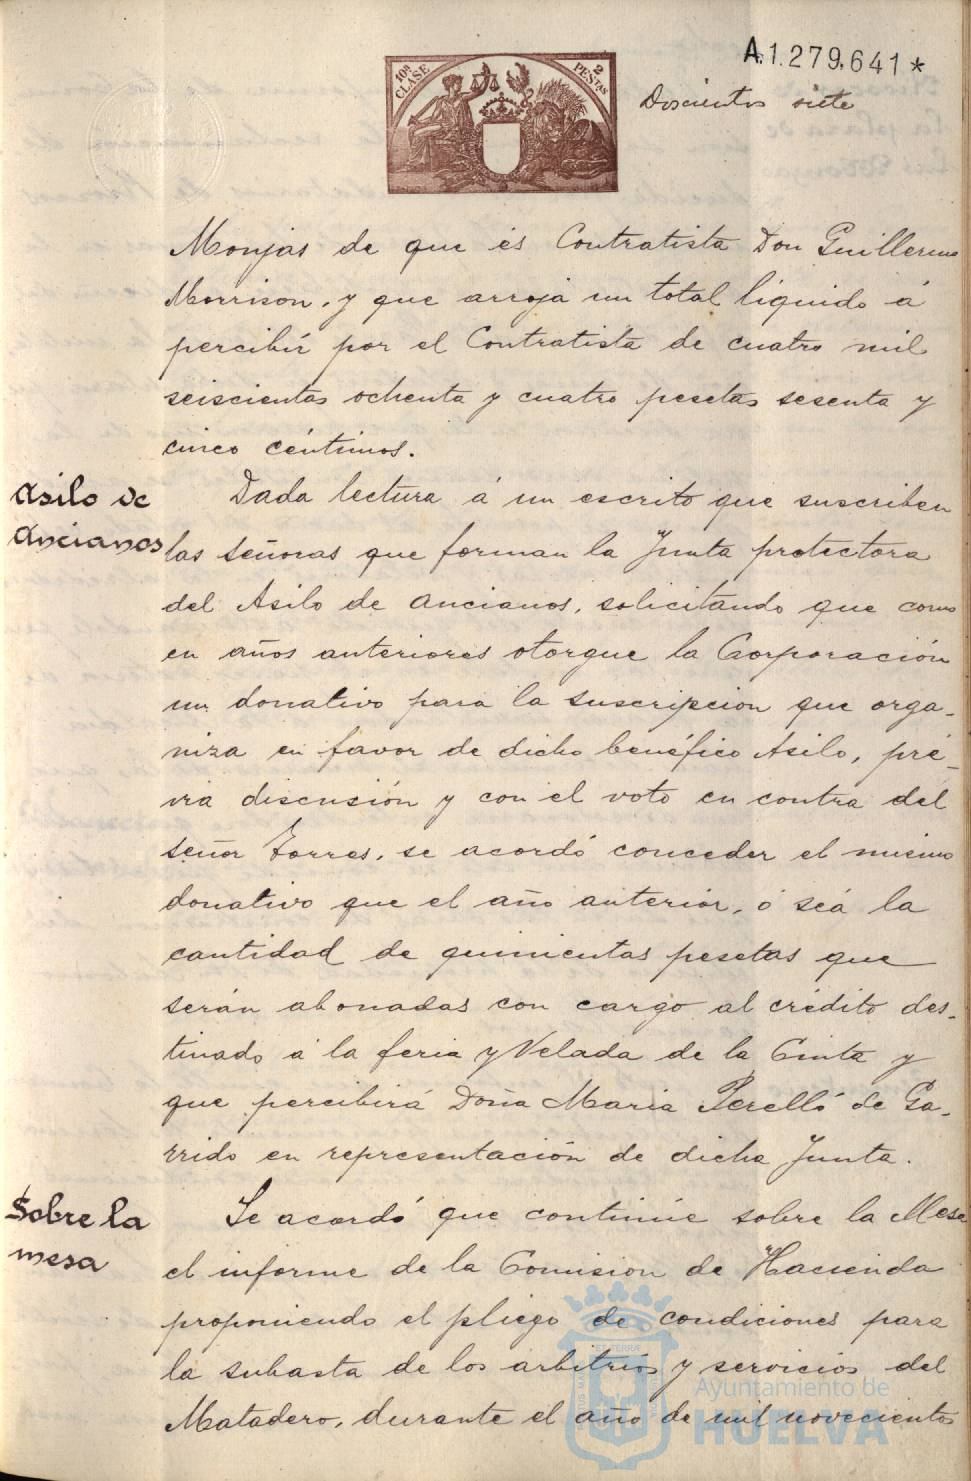 A.1.279.641*
10ª CLASE
2 PESTAS
Doscientos siete
Monjas de que és Contratista Don Guillermo
Morrison, y que arroja un total líquido á
percibir por el Contratista de cuatro mil
seiscientas ochenta y cuatro pesetas sesenta y
cinco céntimos.
Asilo de
Ancianos
Dada lectura á un escrito que suscriben
las señoras que forman la Junta protectora
del Asilo de Ancianos, solicitando que como
en años anteriores otorgue la Corporación
un donativo para la suscripcion que orga-
niza en favor de dicho benéfico Asilo, pré-
via discusión y con el voto en contra del
señor Torres, se acordó conceder el mismo
donativo que el año anterior, ó séa la
cantidad de quinientas pesetas que
serán abonadas con cargo al crédito des-
tinado á la feria y Velada de la Cinta y
que percibirá Doña Maria Perelló de Ga-
rrido en representación de dicha Junta.
Sobre la
mesa
Se acordó que continúe sobre la Mesa
el informe de la Comision de Hacienda
proponiendo el pliego de condiciones para
la subasta de los arbitrios y servicios del
Matadero, durante el año de mil novecientos
Ayuntamiento de
HUELVA